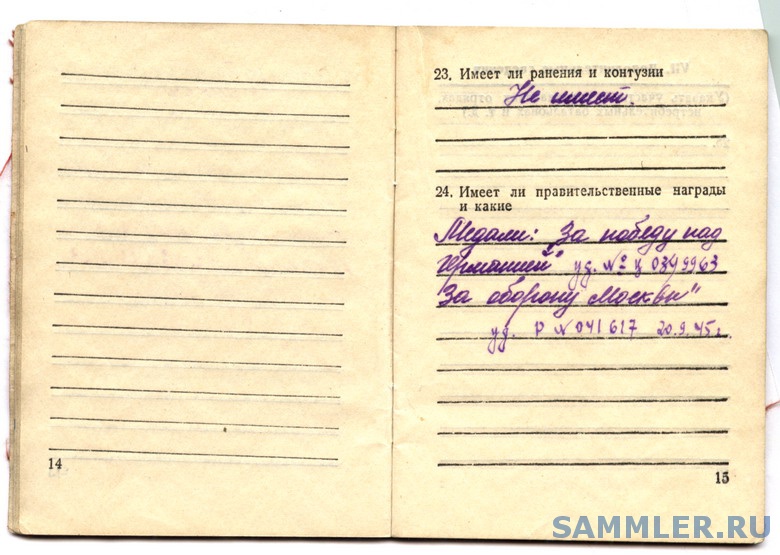 14
23. Имеет ли ранения и контузии
Не имеет
24. Имеет ли правительственные награды
и какие
Медали: За победу над
Германией" уд. № Ц 0349963
За оборону Москвы"
уд. Р № 041617 20.9.45г.
15
SAMMLER.RU